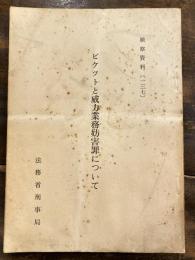 検察資料〔一三七〕
ピケットと威力業務妨害罪について
法務省刑事局